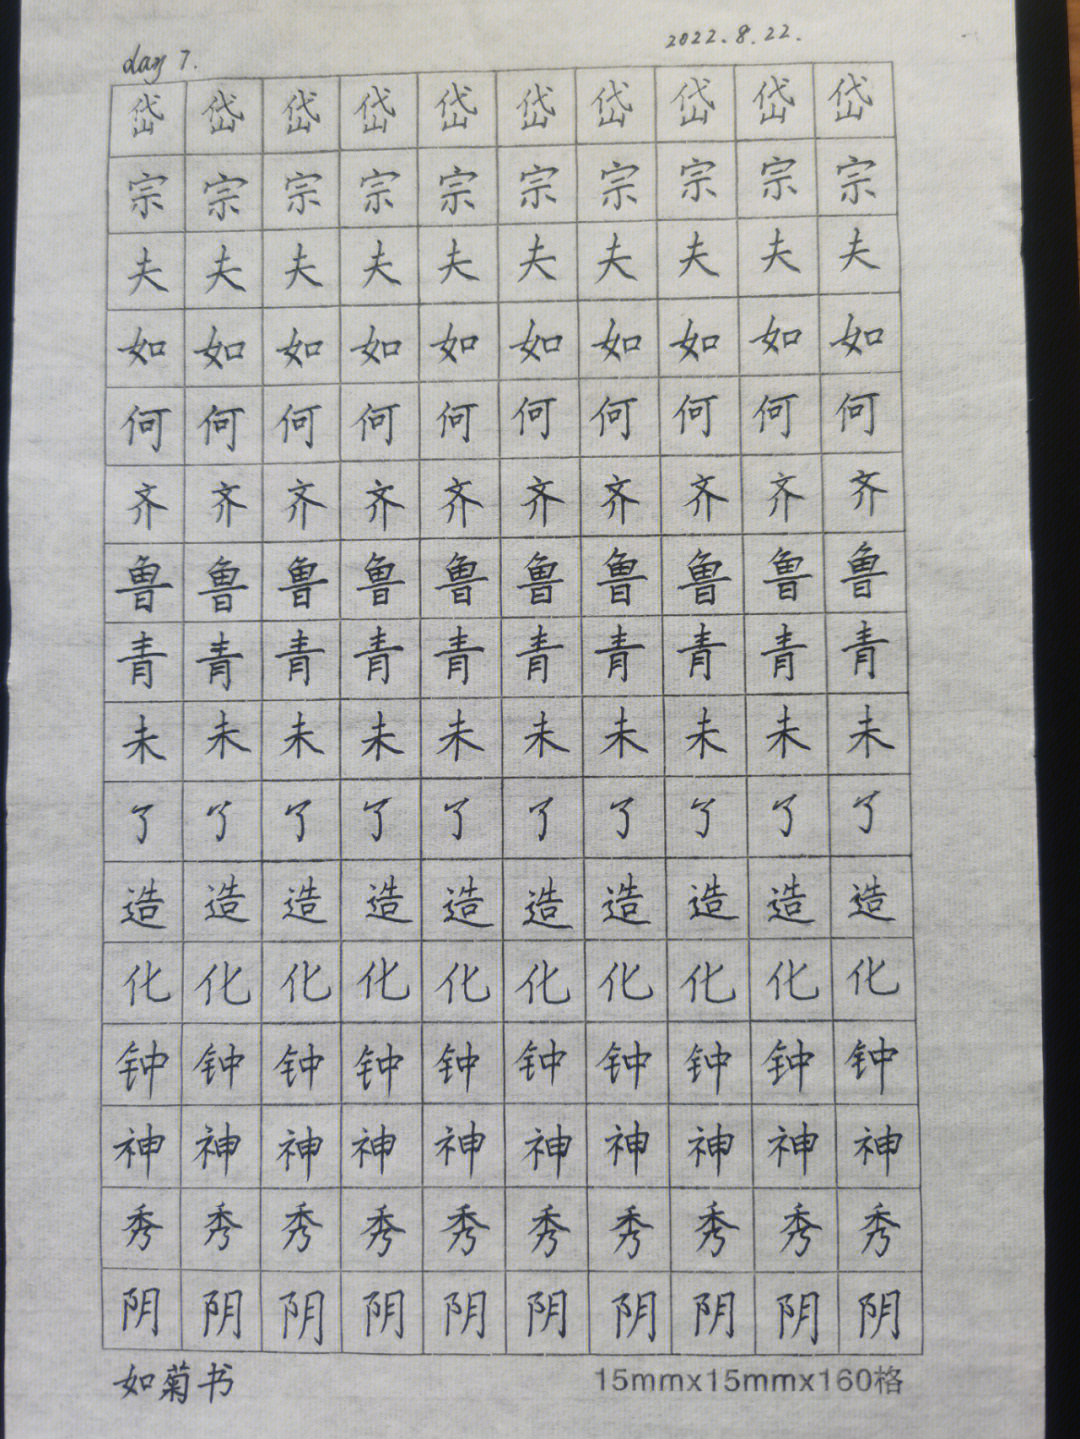 day 7. 2022.8.22.
岱岱岱岱岱岱岱岱岱岱
宗宗宗宗宗宗宗宗宗宗
夫夫夫夫夫夫夫夫夫夫
如如如如如如如如如如
何何何何何何何何何何
齐齐齐齐齐齐齐齐齐齐
鲁鲁鲁鲁鲁鲁鲁鲁鲁鲁
青青青青青青青青青青
未未未未未未未未未未
了了了了了了了了了了
造造造造造造造造造造
化化化化化化化化化化
钟钟钟钟钟钟钟钟钟钟
神神神神神神神神神神
秀秀秀秀秀秀秀秀秀秀
阴阴阴阴阴阴阴阴阴阴
如菊书 15mmx15mmx160格